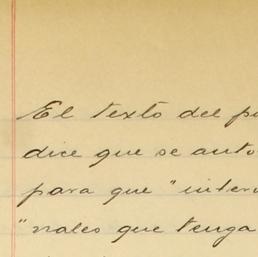 El texto del p
dice que se auto
para que "inter
"nales que tenga